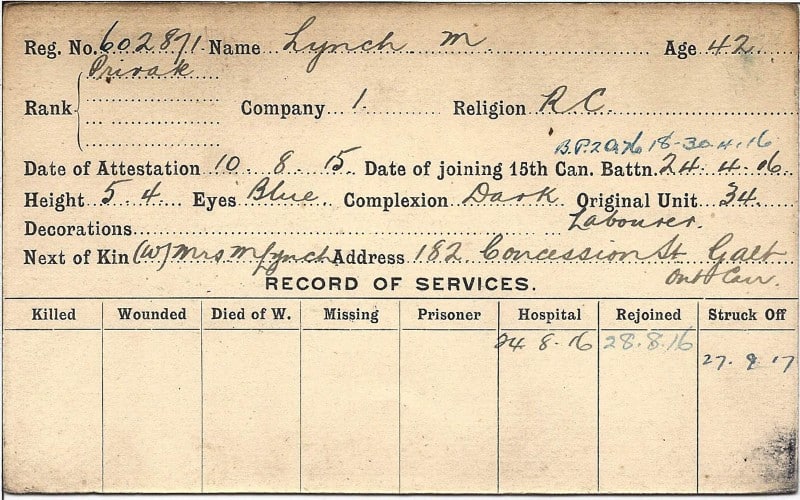 Reg. No. 602871 Name Lynch M. Age 42
Private
Rank Company 1. Religion R C.
B.P.2076 18-30.4.16
Date of Attestation 10. 8. 15. Date of joining 15th Can. Battn. 24. 4. 16.
Height 5. 4. Eyes Blue Complexion Dark Original Unit 34.
Decorations Labourer.
Next of Kin (W) Mrs M Lynch Address 182 Concession St. Galt
Ont Can.
RECORD OF SERVICES.
Killed Wounded Died of W. Missing Prisoner Hospital Rejoined Struck Off
24 8.16 28.8.16
27.9.17